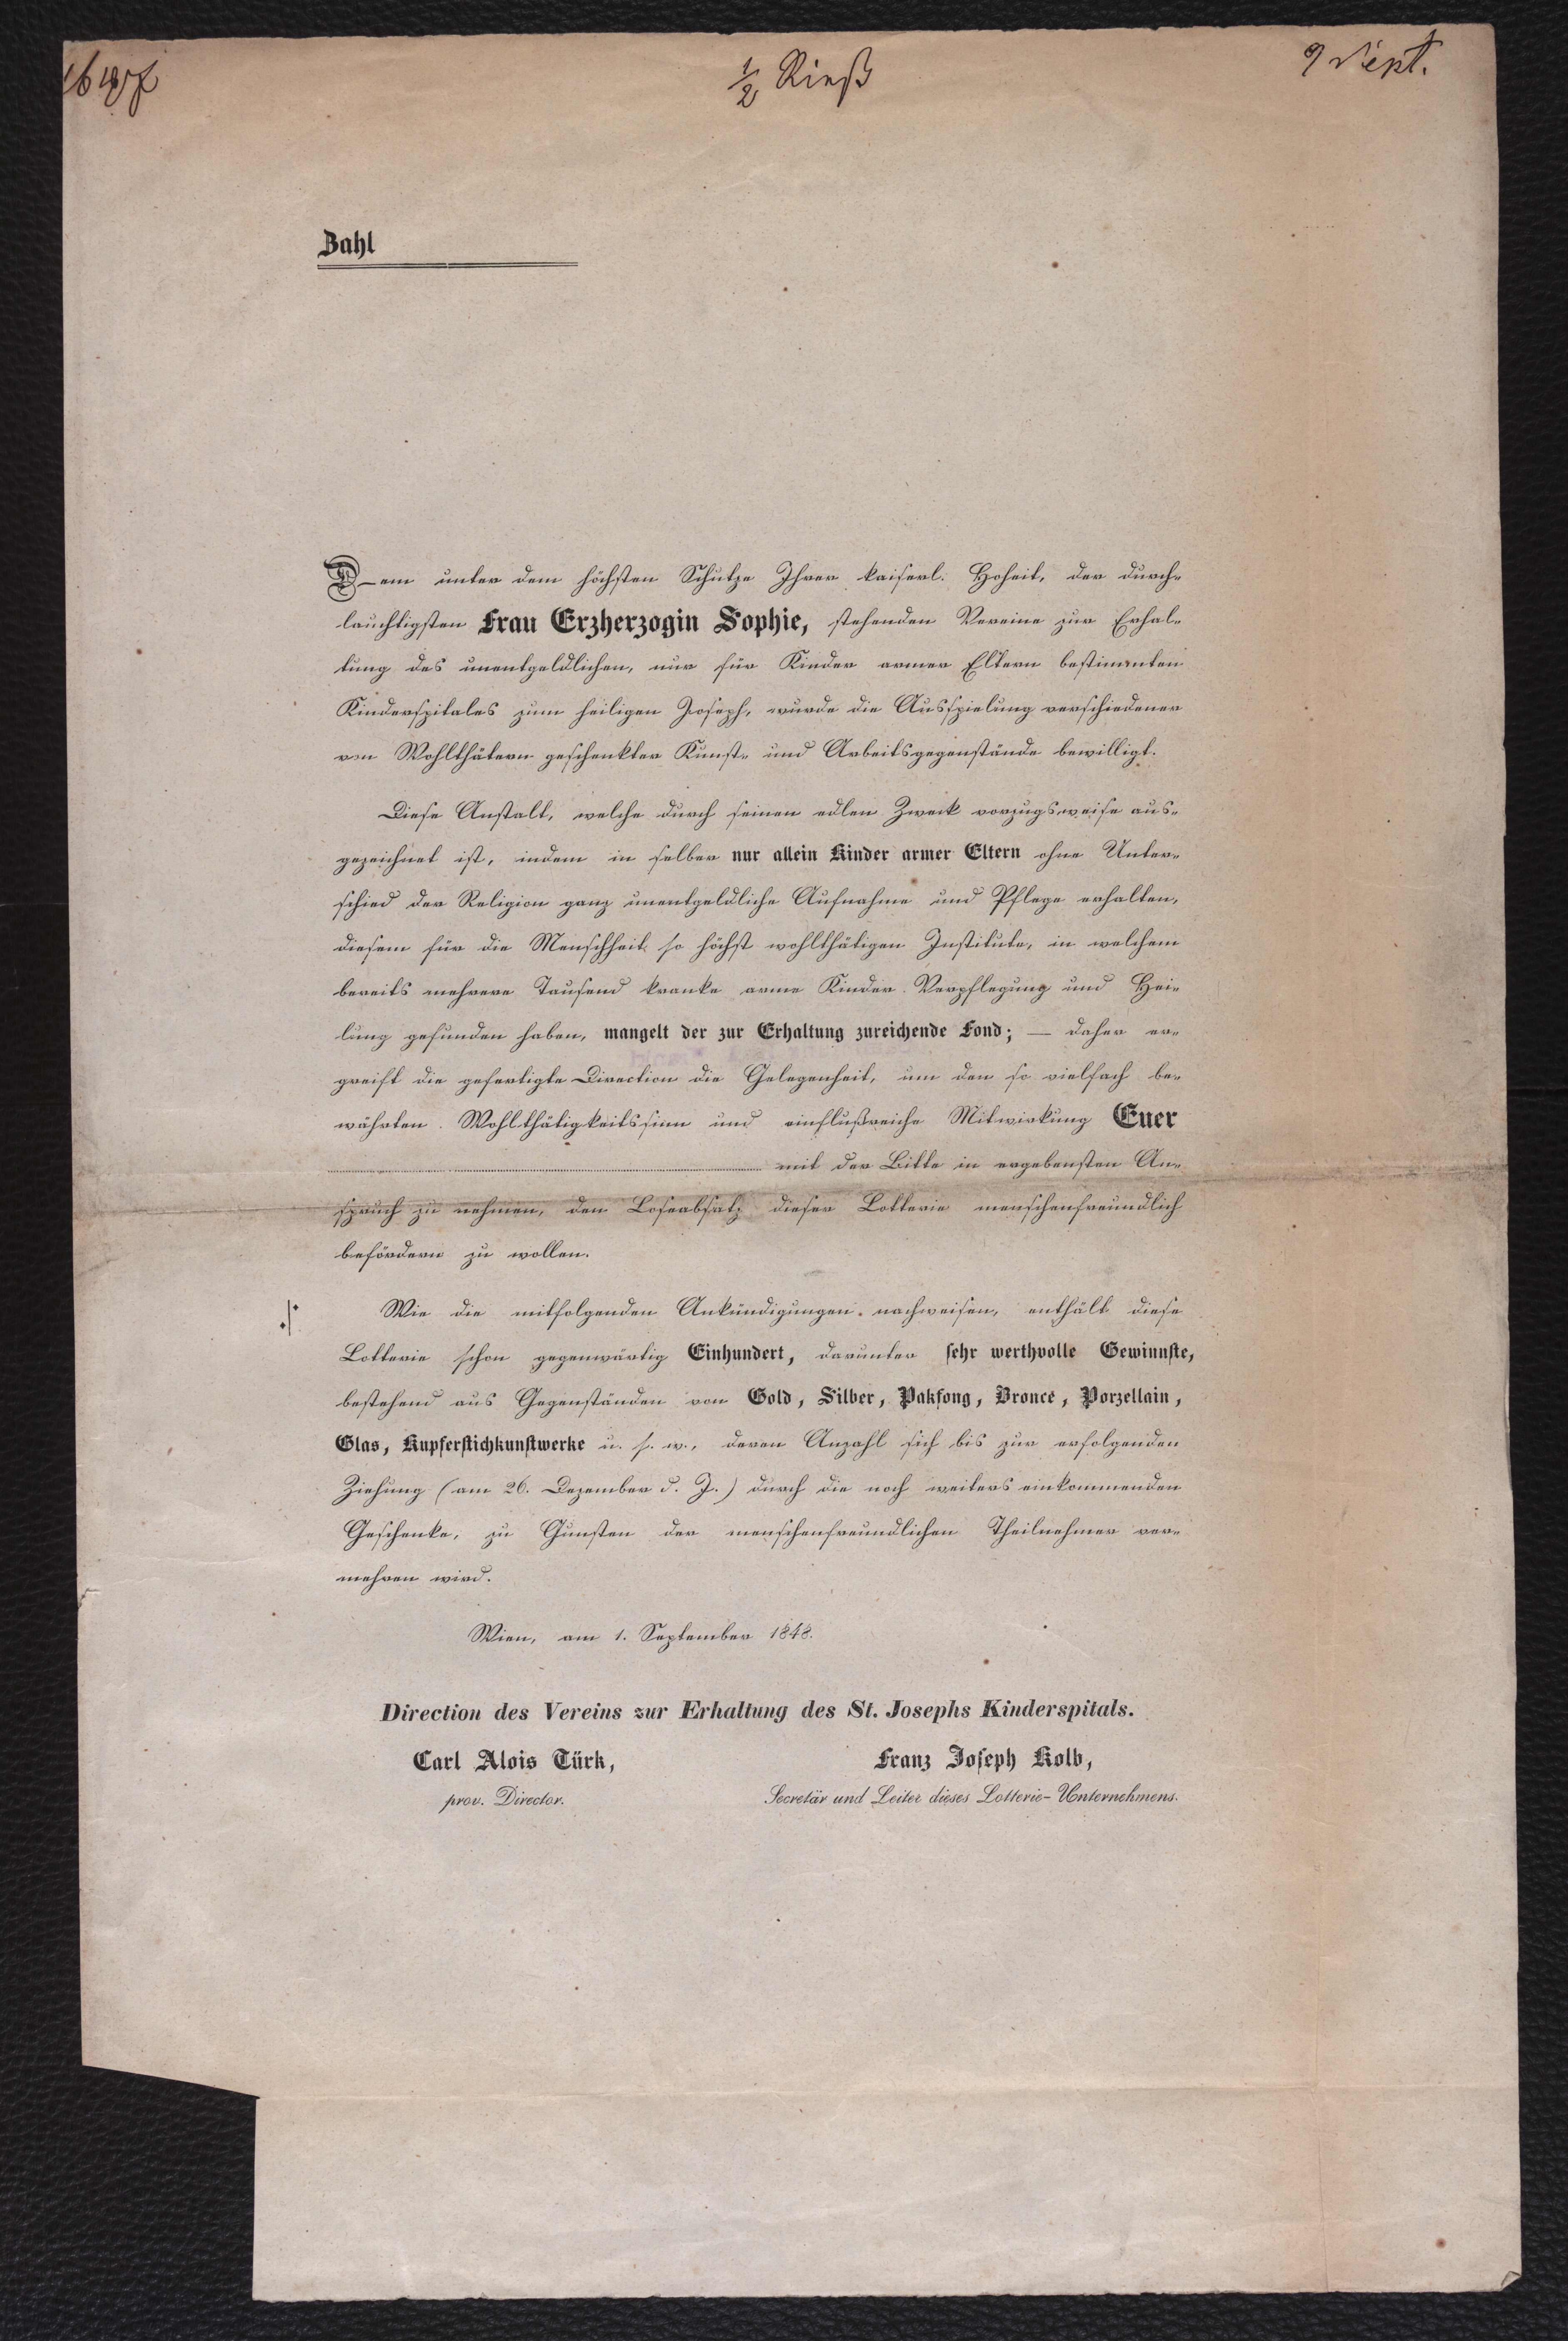 ½ Rieß
9 Sept.
Zahl
Dem unter dem höchsten Schutze Ihrer kaiserl. Hoheit, der durch-
lauchtigsten Frau Erzherzogin Sophie, stehenden Vereine zur Erhal-
tung des unentgeldlichen, nur für Kinder armer Eltern bestimmten
Kinderspitales zum heiligen Joseph, wurde die Ausspielung verschiedener
von Wohlthätern geschenkter Kunst- und Arbeitsgegenstände bewilligt.
Diese Anstalt, welche durch seinen edlen Zweck vorzugsweise aus-
gezeichnet ist, indem in selber nur allein Kinder armer Eltern ohne Unter-
schied der Religion ganz unentgeldliche Aufnahme und Pflege erhalten,
diesem für die Menschheit so höchst wohlthätigen Institute, in welchem
bereits mehrere Tausend kranke arme Kinder Verpflegung und Hei-
lung gefunden haben, mangelt der zur Erhaltung zureichende Fond; — daher er-
greift die gefertigte Direction die Gelegenheit, um den so vielfach be-
währten Wohlthätigkeitssinn und einflußreiche Mitwirkung Euer
mit der Bitte in ergebensten An-
spruch zu nehmen, den Loseabsatz dieser Lotterie menschenfreundlich
befördern zu wollen.
Wie die mitfolgenden Ankündigungen nachweisen, enthält diese
Lotterie schon gegenwärtig Einhundert, darunter sehr werthvolle Gewinnste,
bestehend aus Gegenständen von Gold, Silber, Pakfong, Bronce, Porzellain,
Glas, Kupferstichkunstwerke u. s. w., deren Anzahl sich bis zur erfolgenden
Ziehung (am 26. Dezember d. J.) durch die noch weiters einkommenden
Geschenke, zu Gunsten der menschenfreundlichen Theilnehmer ver-
mehren wird.
Wien, am 1. September 1848.
Direction des Vereins zur Erhaltung des St. Josephs Kinderspitals.
Carl Alois Türk,
Franz Joseph Kolb,
prov. Director.
Secretär und Leiter dieses Lotterie-Unternehmens.